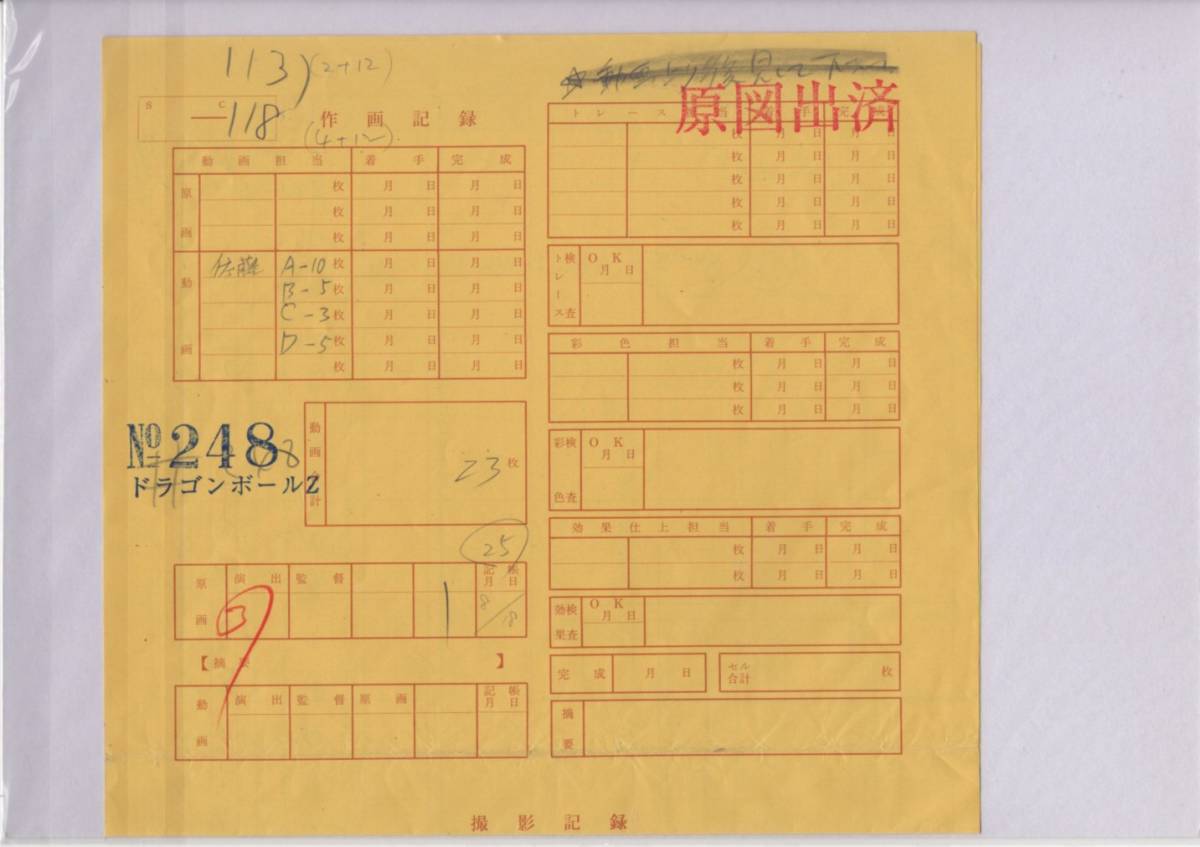 113) (2+12)
S C
118 (4+12)
作画記録
動画担当 着手 完成
原画 枚 月 日 月 日
枚 月 日 月 日
枚 月 日 月 日
動画 佐藤 A-10枚 月 日 月 日
B-5枚 月 日 月 日
C-3枚 月 日 月 日
D-5枚 月 日 月 日
枚 月 日 月 日
No 248
ドラゴンボールZ
動画合計 23枚
25
原画 演出 監督 記帳 月日
1 8/18
【摘要】
動画 演出 監督 原画 記帳 月日
原図出済
トレース担当 着手 完成
枚 月 日 月 日
枚 月 日 月 日
枚 月 日 月 日
枚 月 日 月 日
枚 月 日 月 日
トレース検査 OK 月 日
彩色担当 着手 完成
枚 月 日 月 日
枚 月 日 月 日
枚 月 日 月 日
彩色検査 OK 月 日
効果仕上担当 着手 完成
枚 月 日 月 日
枚 月 日 月 日
効果検査 OK 月 日
完成 月 日
セル合計 枚
摘要
撮影記録